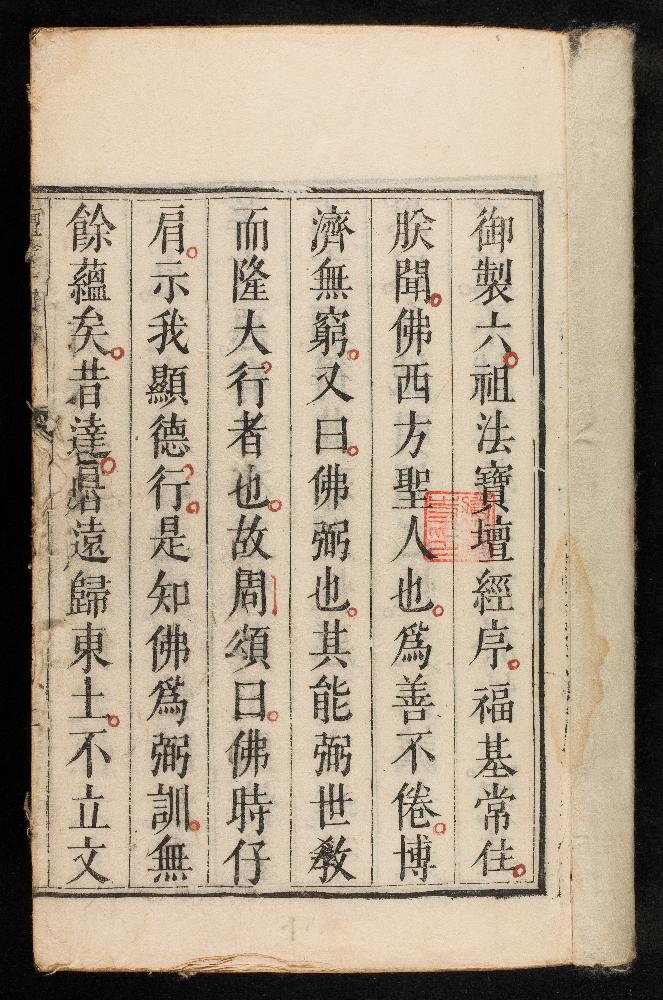 御製六祖法寶壇經序福基常住
朕聞佛西方聖人也爲善不倦博
濟無窮又曰佛弼也其能弼世敎
而隆大行者也故周頌曰佛時仔
肩示我顯德行是知佛爲弼訓無
餘蘊矣昔達磨遠歸東土不立文